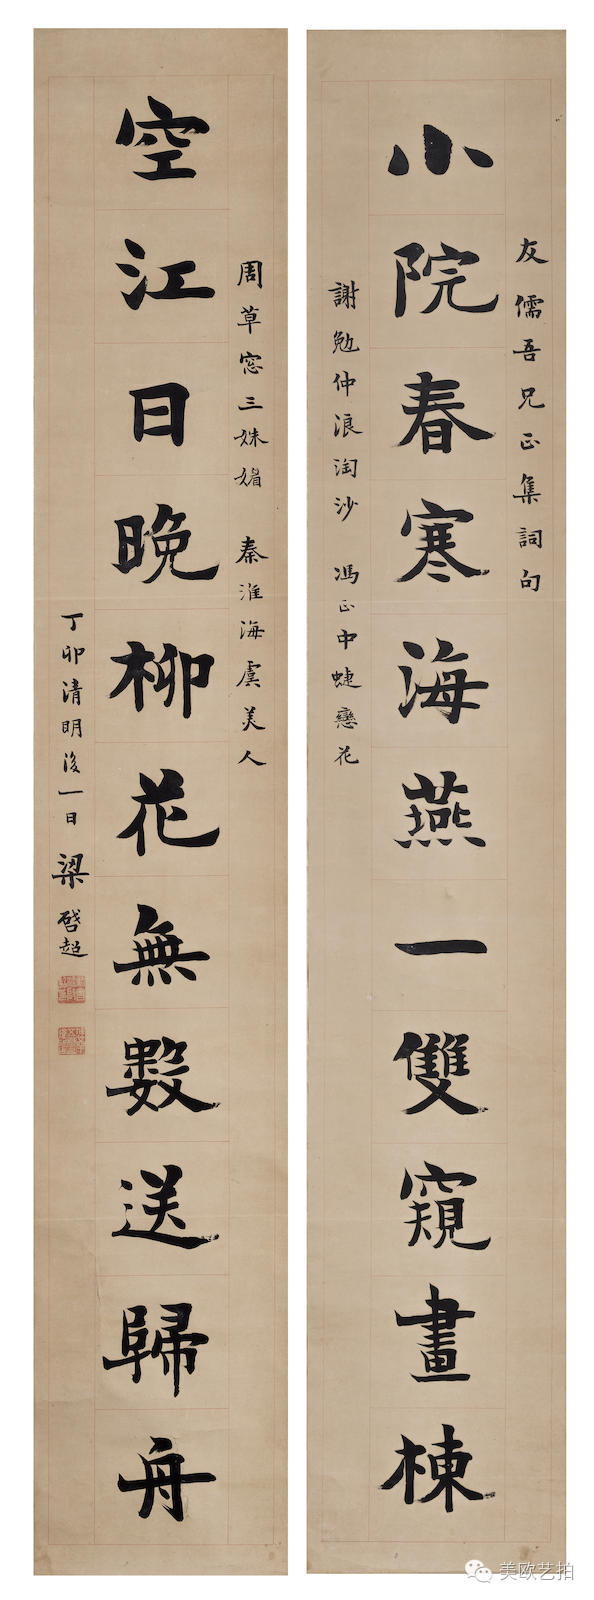 友儒吾兄正集詞句
小院春寒海燕一雙窺畫棟
謝勉仲浪淘沙 馮正中蜨戀花
周草窓三姝媚 秦淮海虞美人
空江日晚柳花無數送歸舟
丁卯清明後一日 梁啓超
美欧艺拍